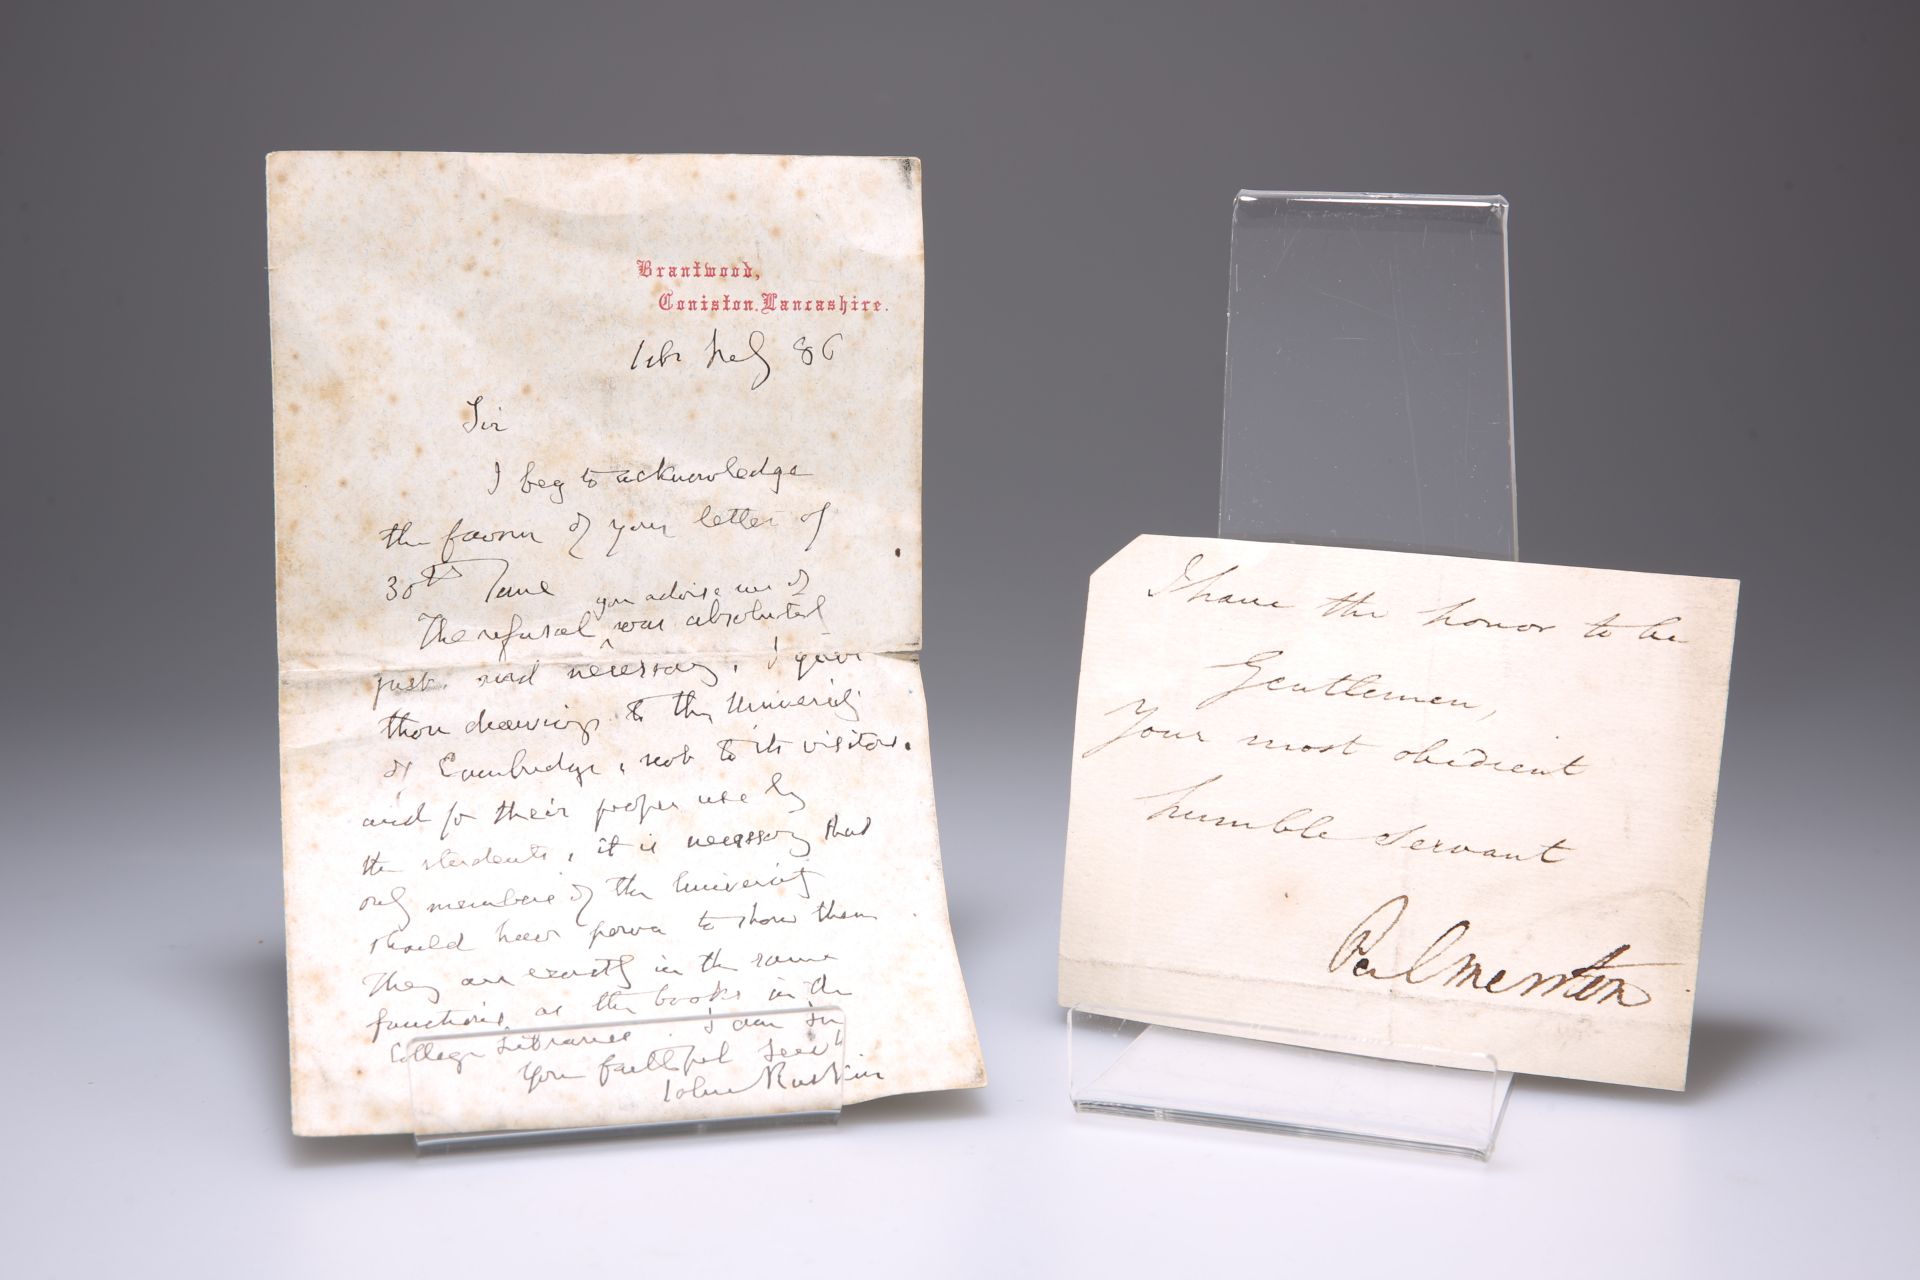 Brantwood,
Coniston. Lancashire.
July 86
Sir
I beg to acknowledge
the favour of your letter of
30th June
you advise me of
The refusal was absolutely
just, and necessary, I gave
those drawings to the University
of Cambridge, not to its visitors.
and for their proper use by
the students, it is necessary that
only members of the University
should have power to show them
They are exactly in the same
functions as the books in the
College Libraries. I am Sir
Your faithful Servt
John Ruskin
I have the honor to be
Gentlemen,
Your most obedient
humble servant
Palmerston